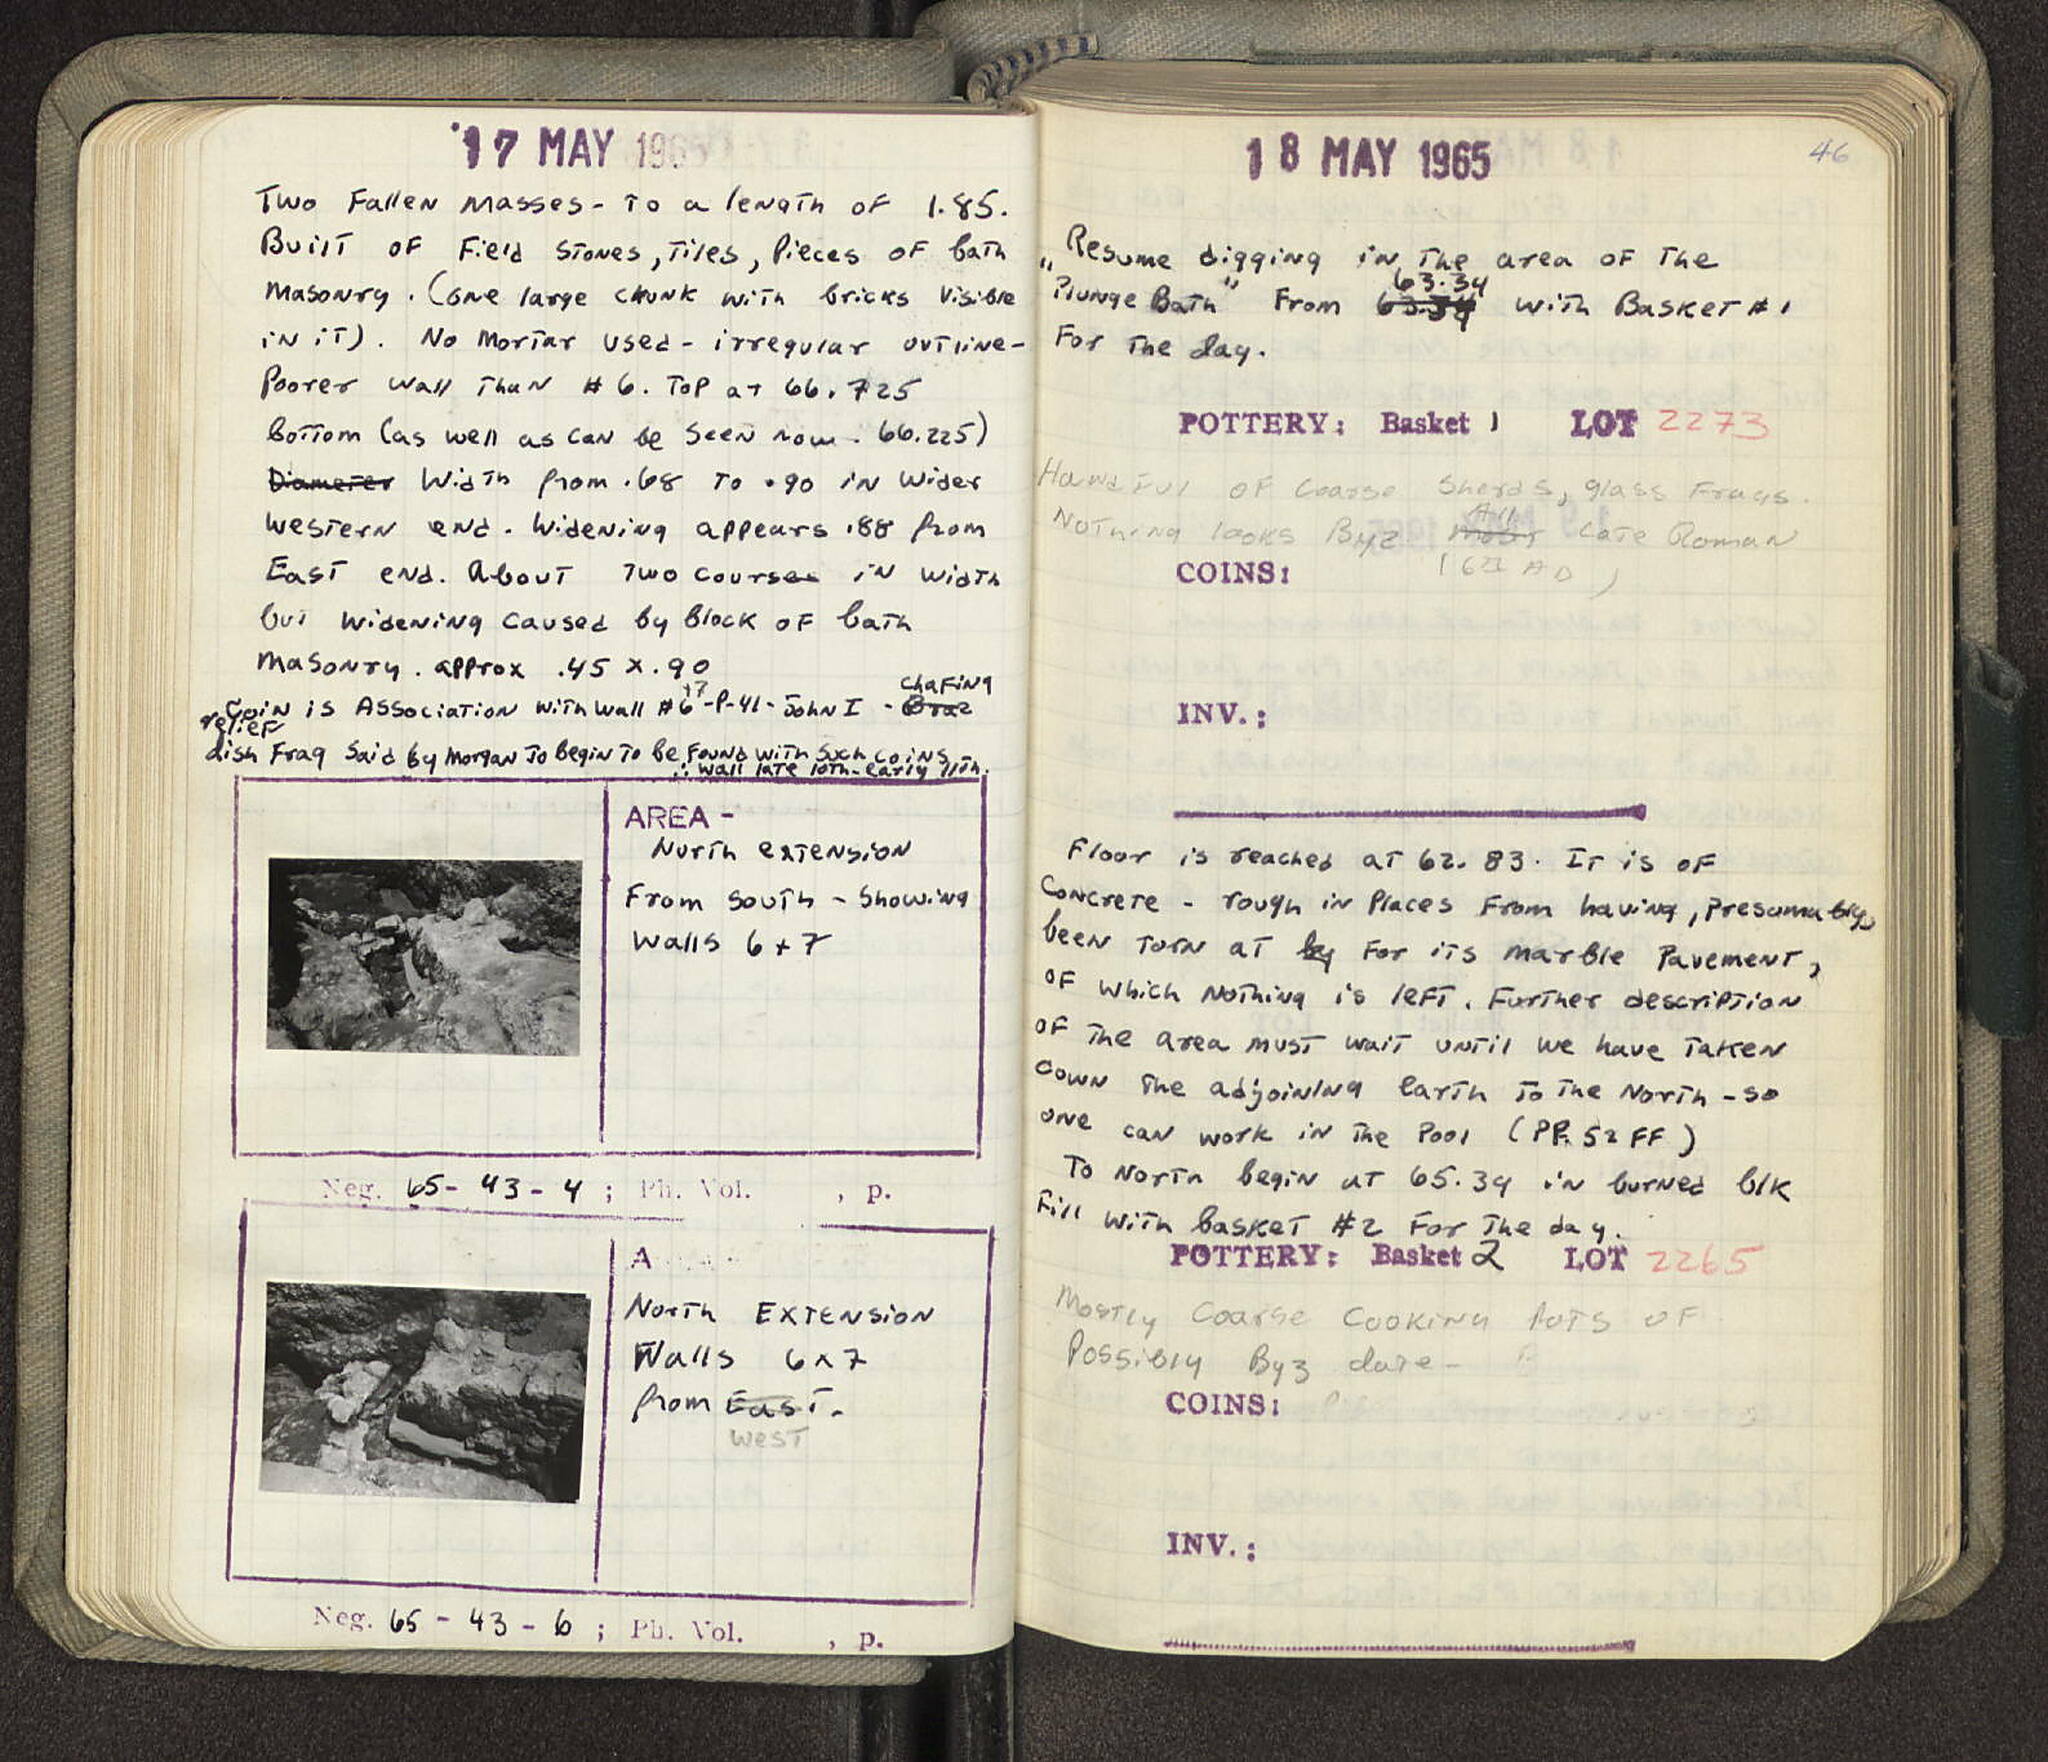 17 MAY 1965
Two Fallen masses - to a length of 1.85.
Built of Field stones, tiles, Pieces of bath
masonry. (one large chunk with bricks visible
in it). No mortar used - irregular outline -
Poorer wall than #6. Top at 66.725
bottom (as well as can be seen now. 66.225)
Diameter Width from .68 to .90 in wider
western end. Widening appears .88 from
East end. About two courses in width
but widening caused by block of bath
masonry. approx .45 x .90
Coin is Association with wall #6+7 - P-41 - John I - Braz Chafing
relief
dish Frag said by Morgan to begin to be found with such coins
∴ wall late 10th-early 11th.
AREA -
North extension
From south - showing
walls 6+7
Neg. 65-43-4 ; Ph. Vol. , p.
A
North EXTENSION
Walls 6+7
from East.
west
Neg. 65-43-6 ; Ph. Vol. , p.
18 MAY 1965
46
Resume digging in the area of the
63.34
"Plunge Bath" From 63.34 with Basket #1
For the day.
POTTERY: Basket 1 LOT 2273
Handful of coarse sherds, glass Frags.
All
Nothing looks Byz most Late Roman
COINS:
INV.:
Floor is reached at 62.83. It is of
Concrete - rough in places from having, presumably,
been torn at by for its marble pavement,
of which nothing is left. Further description
of the area must wait until we have taken
down the adjoining earth to the North - so
one can work in the Pool (PP. 52 FF)
To North begin at 65.34 in burned blk
fill with basket #2 for the day.
POTTERY: Basket 2 LOT 2265
Mostly Coarse Cooking Pots of
Possibly Byz date -
COINS:
INV.: